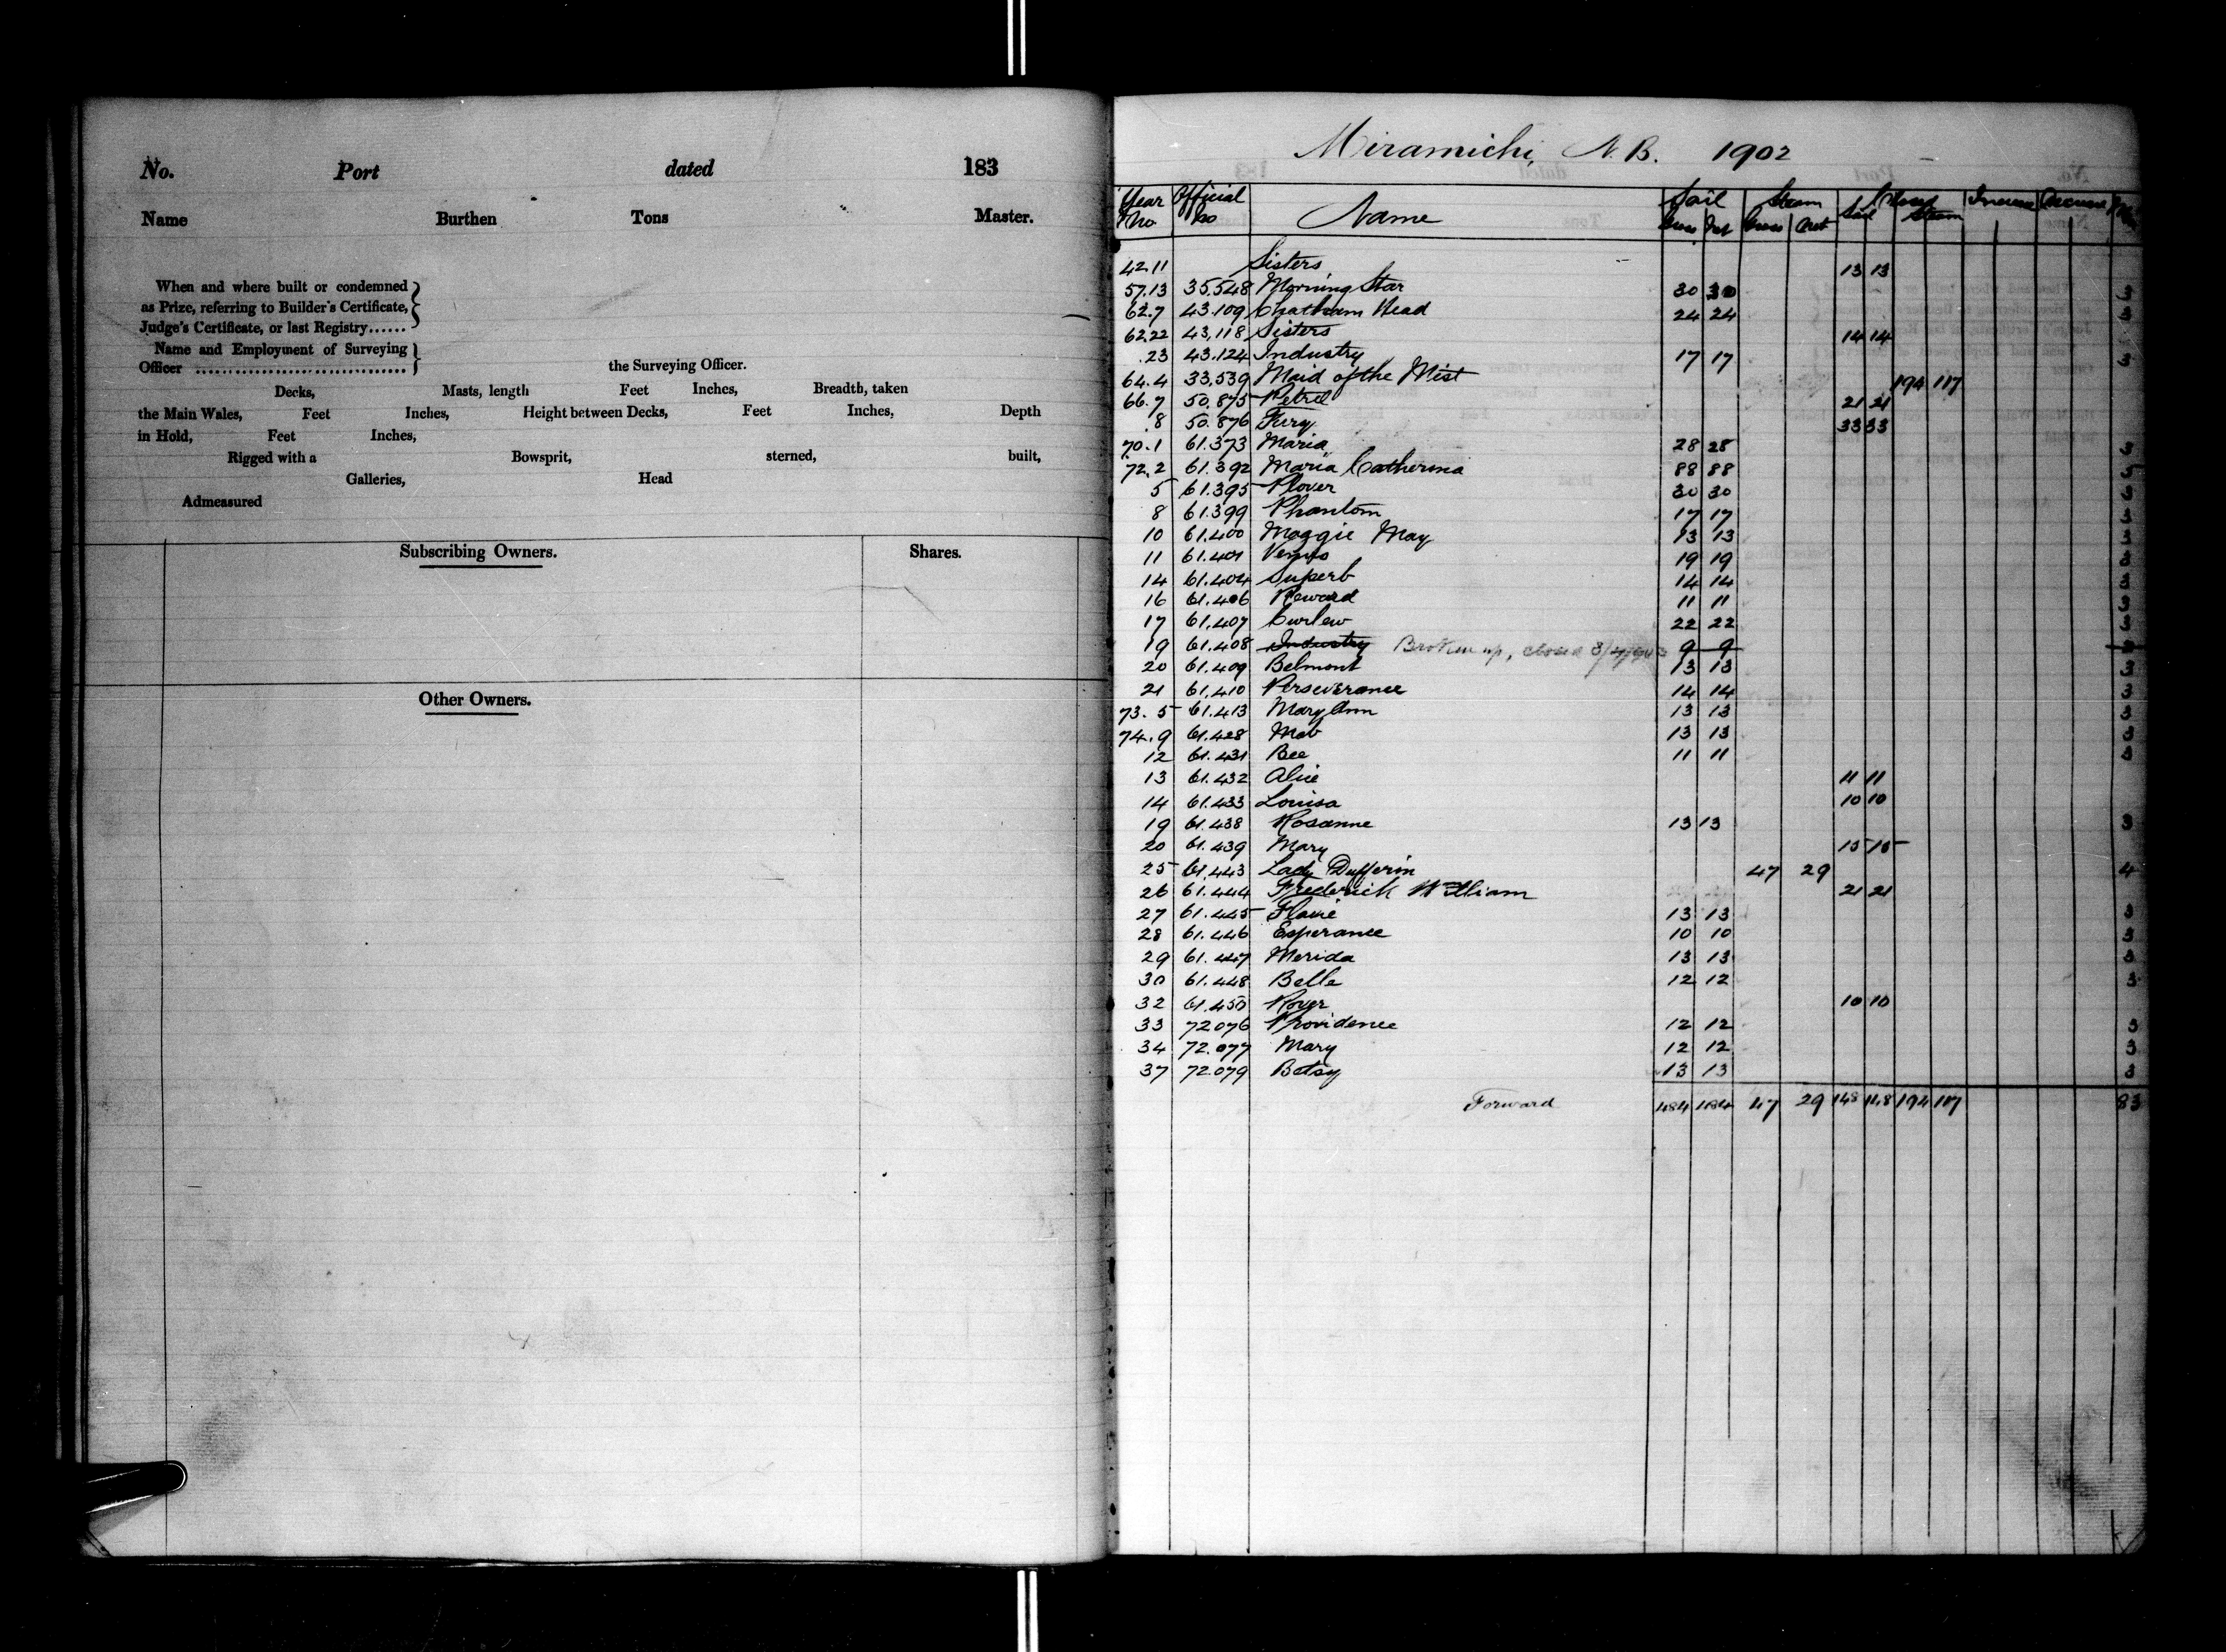 No. Port dated 183
Name Burthen Tons Master.
When and where built or condemned
as Prize, referring to Builder's Certificate,
Judge's Certificate, or last Registry......
Name and Employment of Surveying
Officer ................................ the Surveying Officer.
Decks, Masts, length Feet Inches, Breadth, taken
the Main Wales, Feet Inches, Height between Decks, Feet Inches, Depth
in Hold, Feet Inches,
Rigged with a Bowsprit, sterned, built,
Galleries, Head
Admeasured
Subscribing Owners. Shares.
Other Owners.
Miramichi, N.B. 1902
Year Official Name Sail Steam Closed
No no Gross Net Gross Net Sail Steam
42.11 Sisters 13 13
57.13 35,548 Morning Star 30 30 3
62.7 43.109 Chatham Head 24 24 3
62.22 43,118 Sisters 14 14
.23 43.124 Industry 17 17 3
64.4 33,539 Maid of the Mist 194 117
66.7 50,875 Petrel 21 21
.8 50.876 Fury 33 33
70.1 61.373 Maria 28 28 3
72.2 61.392 Maria Catherina 88 88 5
5 61.395 Plover 30 30 3
8 61.399 Phantom 17 17 3
10 61.400 Maggie May 13 13 3
11 61.401 Venus 19 19 3
14 61.404 Superb 14 14 3
16 61.406 Reward 11 11 3
17 61,407 Curlew 22 22 3
19 61.408 Industry Broken up, closed 9 9 3
20 61.409 Belmont 13 13 3
21 61.410 Perseverance 14 14 3
73.5 61.413 Mary Ann 13 13 3
74.9 61.428 Mab 13 13 3
12 61.431 Bee 11 11 3
13 61.432 Alice 11 11
14 61.433 Louisa 10 10
19 61.438 Rosanne 13 13 3
20 61.439 Mary 15 15
25 61,443 Lady Dufferin 47 29 4
26 61.444 Frederick William 21 21
27 61.445 Flavie 13 13 3
28 61.446 Esperance 10 10 3
29 61.447 Merida 13 13 3
30 61.448 Belle 12 12 3
32 61.450 Rover 10 10
33 72076 Providence 12 12 3
34 72.077 Mary 12 12 3
37 72.079 Betsy 13 13 3
Forward 484 484 47 29 148 148 194 117 83